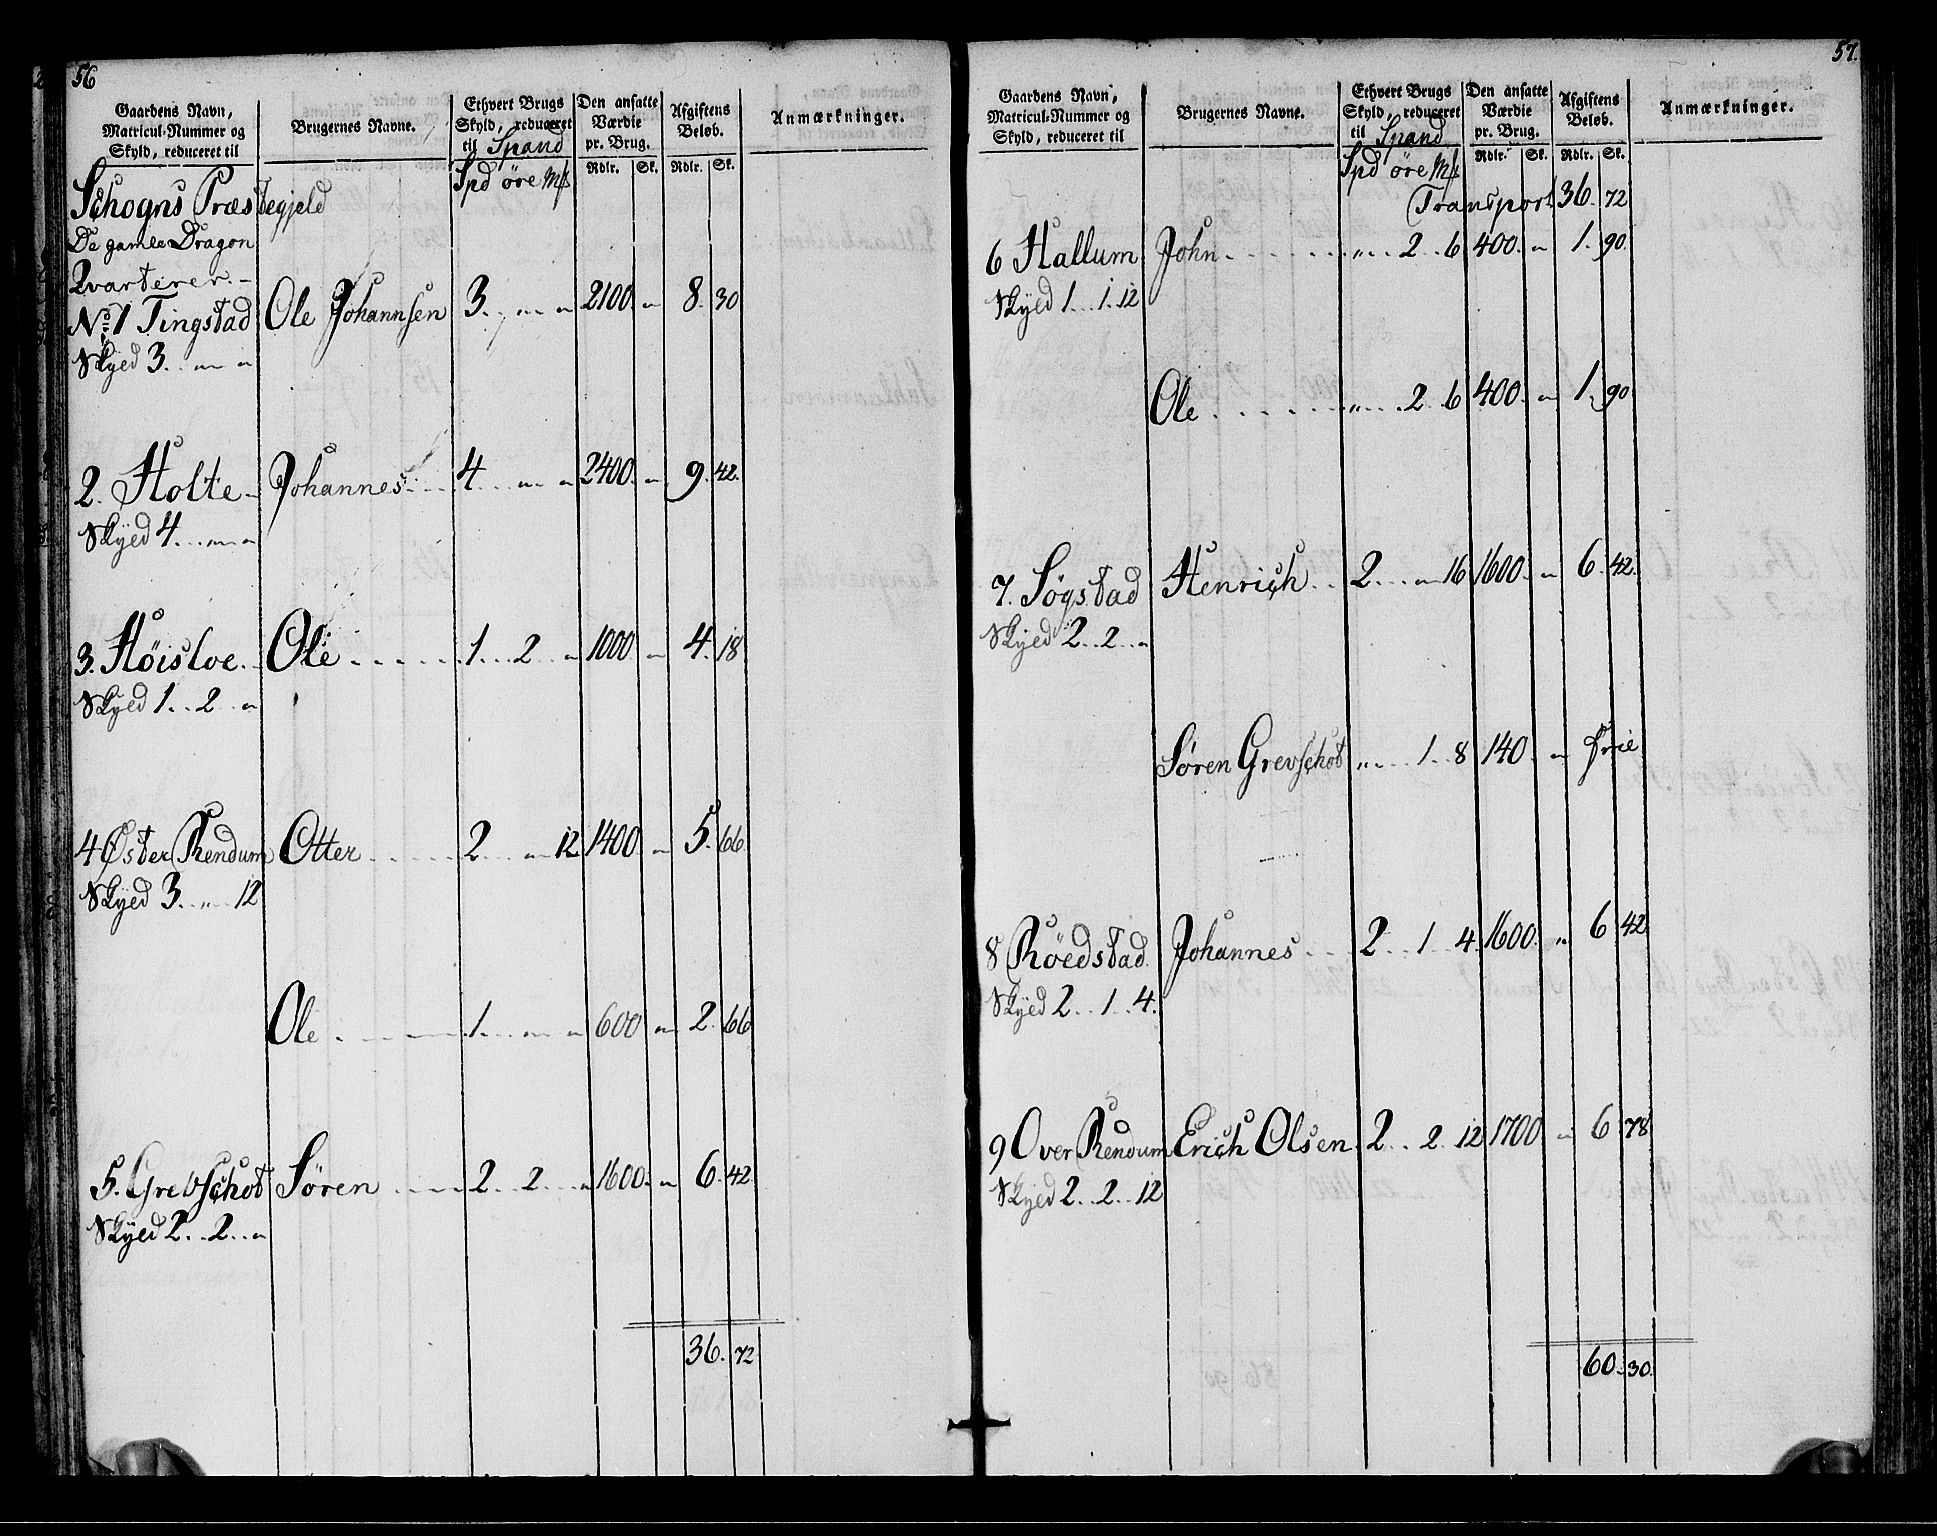 56
Gaardens Navn, Matricul-Nummer og Skyld, reduceret til | Brugernes Navne. | Ethvert Brugs Skyld, reduceret til Spand | Den ansatte Værdie pr. Brug. | Afgiftens Beløb. | Anmærkninger.
Spd øre Mk | Rdlr. | Sk. | Rdlr. | Sk.
Schogns Præstegjeld
De gamle Dragon
Qvarterer.
No 1 Tingstad Ole Johannsen 3. „ „ 2100. „ 8. 30
Skyed 3. „ „
2. Holte Johannes 4 „ „ 2400. „ 9. 42.
Skyed 4. „ „
3. Høisloe Ole 1. 2 „ 1000 „ 4. 18
Skyed 1. 2 „
4 Øster Rendum Otter 2 „ 12 1400 „ 5. 66
Skyed 3. „ 12
Ole 1. „ „ 600 „ 2. 66
5. Grevschot Søren 2. 2. „ 1600. „ 6. 42
Skyed 2. 2. „
36. 72
57.
Gaardens Navn, Matricul-Nummer og Skyld, reduceret til | Brugernes Navne. | Ethvert Brugs Skyld, reduceret til Spand | Den ansatte Værdie pr. Brug. | Afgiftens Beløb. | Anmærkninger.
Spd øre Mk | Rdlr. | Sk. | Rdlr. | Sk.
Transport 36. 72
6 Hallum John „ 2 6 400. „ 1. 90
Skyed 1. 1. 12
Ole „ 2 6 400. „ 1. 90
7. Søgstad Henrich 2 „ 16 1600. „ 6. 42.
Skyed 2. 2. „
Søren Grevschot „ 1. 8 140 „ Frie
8 Röedstad Johannes 2. 1 4. 1600. „ 6 42
Skyed 2. 1. 4.
9 Over Rendum Erich Olsen 2. 2. 12 1700 „ 6 78
Skyed 2. 2. 12
60. 30.